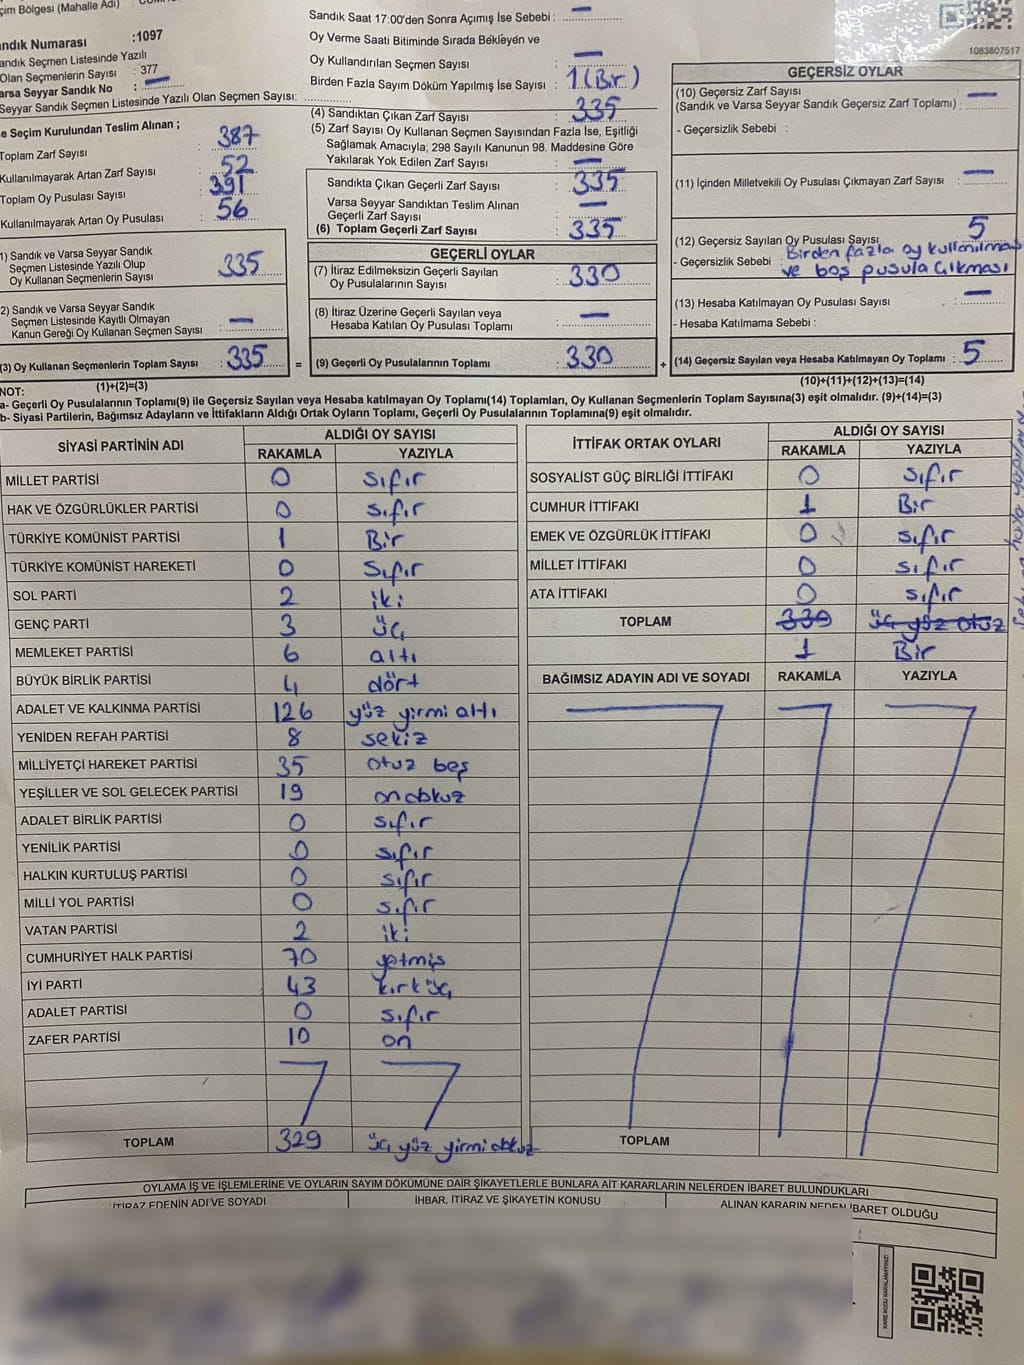 çim Bölgesi (Mahalle Adı)
Sandık Saat 17:00'den Sonra Açımış İse Sebebi : —
ndık Numarası :1097
Oy Verme Saati Bitiminde Sırada Bekleyen ve
Oy Kullandırılan Seçmen Sayısı —
andık Seçmen Listesinde Yazılı
Olan Seçmenlerin Sayısı : 377
arsa Seyyar Sandık No : —
Seyyar Sandık Seçmen Listesinde Yazılı Olan Seçmen Sayısı:
Birden Fazla Sayım Döküm Yapılmış İse Sayısı : 1 (Bir)
1083807517
e Seçim Kurulundan Teslim Alınan ;
Toplam Zarf Sayısı : 387
Kullanılmayarak Artan Zarf Sayısı : 52
Toplam Oy Pusulası Sayısı : 391
Kullanılmayarak Artan Oy Pusulası : 56
1) Sandık ve Varsa Seyyar Sandık
Seçmen Listesinde Yazılı Olup
Oy Kullanan Seçmenlerin Sayısı : 335
2) Sandık ve Varsa Seyyar Sandık
Seçmen Listesinde Kayıtlı Olmayan
Kanun Gereği Oy Kullanan Seçmen Sayısı : —
(3) Oy Kullanan Seçmenlerin Toplam Sayısı : 335 =
(1)+(2)=(3)
(4) Sandıktan Çıkan Zarf Sayısı : 335
(5) Zarf Sayısı Oy Kullanan Seçmen Sayısından Fazla İse, Eşitliği
Sağlamak Amacıyla; 298 Sayılı Kanunun 98. Maddesine Göre
Yakılarak Yok Edilen Zarf Sayısı : —
Sandıkta Çıkan Geçerli Zarf Sayısı : 335
Varsa Seyyar Sandıktan Teslim Alınan
Geçerli Zarf Sayısı : —
(6) Toplam Geçerli Zarf Sayısı : 335
GEÇERLİ OYLAR
(7) İtiraz Edilmeksizin Geçerli Sayılan
Oy Pusulalarının Sayısı : 330
(8) İtiraz Üzerine Geçerli Sayılan veya
Hesaba Katılan Oy Pusulası Toplamı : —
(9) Geçerli Oy Pusulalarının Toplamı : 330 +
GEÇERSİZ OYLAR
(10) Geçersiz Zarf Sayısı
(Sandık ve Varsa Seyyar Sandık Geçersiz Zarf Toplamı) : —
- Geçersizlik Sebebi :
(11) İçinden Milletvekili Oy Pusulası Çıkmayan Zarf Sayısı : —
(12) Geçersiz Sayılan Oy Pusulası Sayısı : 5
- Geçersizlik Sebebi : Birden fazla oy kullanılması
ve boş pusula çıkması
(13) Hesaba Katılmayan Oy Pusulası Sayısı : —
- Hesaba Katılmama Sebebi :
(14) Geçersiz Sayılan veya Hesaba Katılmayan Oy Toplamı : 5
(10)+(11)+(12)+(13)=(14)
NOT:
a- Geçerli Oy Pusulalarının Toplamı(9) ile Geçersiz Sayılan veya Hesaba katılmayan Oy Toplamı(14) Toplamları, Oy Kullanan Seçmenlerin Toplam Sayısına(3) eşit olmalıdır. (9)+(14)=(3)
b- Siyasi Partilerin, Bağımsız Adayların ve İttifakların Aldığı Ortak Oyların Toplamı, Geçerli Oy Pusulalarının Toplamına(9) eşit olmalıdır.
SİYASİ PARTİNİN ADI
ALDIĞI OY SAYISI
RAKAMLA YAZIYLA
MİLLET PARTİSİ 0 sıfır
HAK VE ÖZGÜRLÜKLER PARTİSİ 0 sıfır
TÜRKİYE KOMÜNİST PARTİSİ 1 Bir
TÜRKİYE KOMÜNİST HAREKETİ 0 sıfır
SOL PARTİ 2 iki
GENÇ PARTİ 3 üç
MEMLEKET PARTİSİ 6 altı
BÜYÜK BİRLİK PARTİSİ 4 dört
ADALET VE KALKINMA PARTİSİ 126 yüz yirmi altı
YENİDEN REFAH PARTİSİ 8 sekiz
MİLLİYETÇİ HAREKET PARTİSİ 35 otuz beş
YEŞİLLER VE SOL GELECEK PARTİSİ 19 ondokuz
ADALET BİRLİK PARTİSİ 0 sıfır
YENİLİK PARTİSİ 0 sıfır
HALKIN KURTULUŞ PARTİSİ 0 sıfır
MİLLİ YOL PARTİSİ 0 sıfır
VATAN PARTİSİ 2 iki
CUMHURİYET HALK PARTİSİ 70 yetmiş
İYİ PARTİ 43 kırküç
ADALET PARTİSİ 0 sıfır
ZAFER PARTİSİ 10 on
TOPLAM 329 üç yüz yirmi dokuz
İTTİFAK ORTAK OYLARI
ALDIĞI OY SAYISI
RAKAMLA YAZIYLA
SOSYALİST GÜÇ BİRLİĞİ İTTİFAKI 0 sıfır
CUMHUR İTTİFAKI 1 Bir
EMEK VE ÖZGÜRLÜK İTTİFAKI 0 sıfır
MİLLET İTTİFAKI 0 sıfır
ATA İTTİFAKI 0 sıfır
TOPLAM 330 üç yüz otuz
1 Bir
BAĞIMSIZ ADAYIN ADI VE SOYADI RAKAMLA YAZIYLA
TOPLAM
OYLAMA İŞ VE İŞLEMLERİNE VE OYLARIN SAYIM DÖKÜMÜNE DAİR ŞİKAYETLERLE BUNLARA AİT KARARLARIN NELERDEN İBARET BULUNDUKLARI
İTİRAZ EDENİN ADI VE SOYADI
İHBAR, İTİRAZ VE ŞİKAYETİN KONUSU
ALINAN KARARIN NEDEN İBARET OLDUĞU
KARE KODU KARALAMAYINIZ!